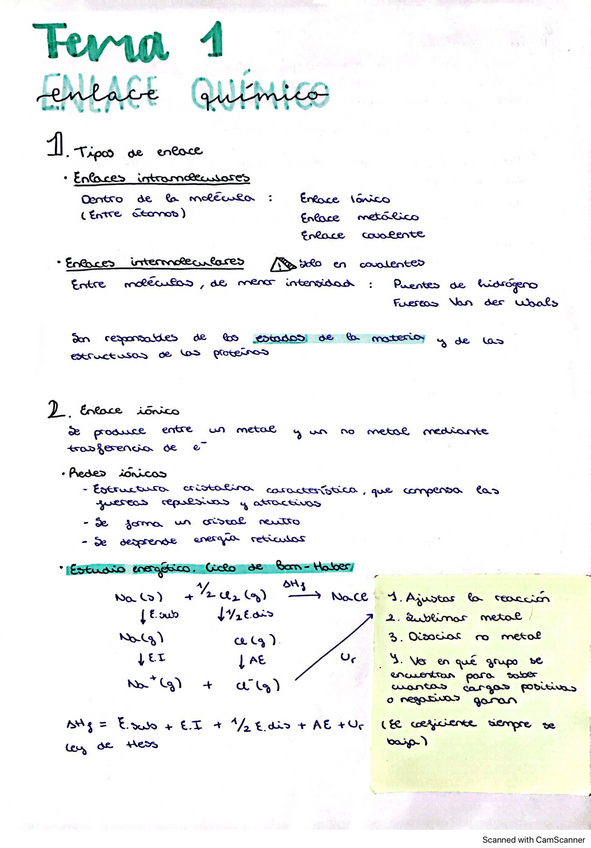 Tema 1
enlace químico
1. Tipos de enlace
· Enlaces intramoleculares
Dentro de la molécula : Enlace iónico
(Entre átomos) Enlace metálico
Enlace covalente
· Enlaces intermoleculares ⚠ Solo en covalentes
Entre moléculas, de menor intensidad : Puentes de hidrógeno
Fuerzas Van der Waals
Son responsables de los estados de la materia y de las
estructuras de las proteínas
2. Enlace iónico
Se produce entre un metal y un no metal mediante
trasferencia de e⁻
· Redes iónicas
- Estructura cristalina característica, que compensa las
fuerzas repulsivas y atractivas
- Se forma un cristal neutro
- Se desprende energía reticular
· Estudio energético. Ciclo de Born-Haber
Na (s) + 1/2 Cl₂ (g) ΔHf → NaCl
↓ E.sub ↓ 1/2 E.dis
Na (g) Cl (g)
↓ E.I ↓ AE Ur
Na⁺ (g) + Cl⁻ (g)
ΔHf = E.sub + E.I + 1/2 E.dis + AE + Ur
Ley de Hess
1. Ajustar la reacción
2. Sublimar metal
3. Disociar no metal
4. Ver en qué grupo se
encuentran para saber
cuantas cargas positivas
o negativas ganan
(El coeficiente siempre se
baja)
Scanned with CamScanner